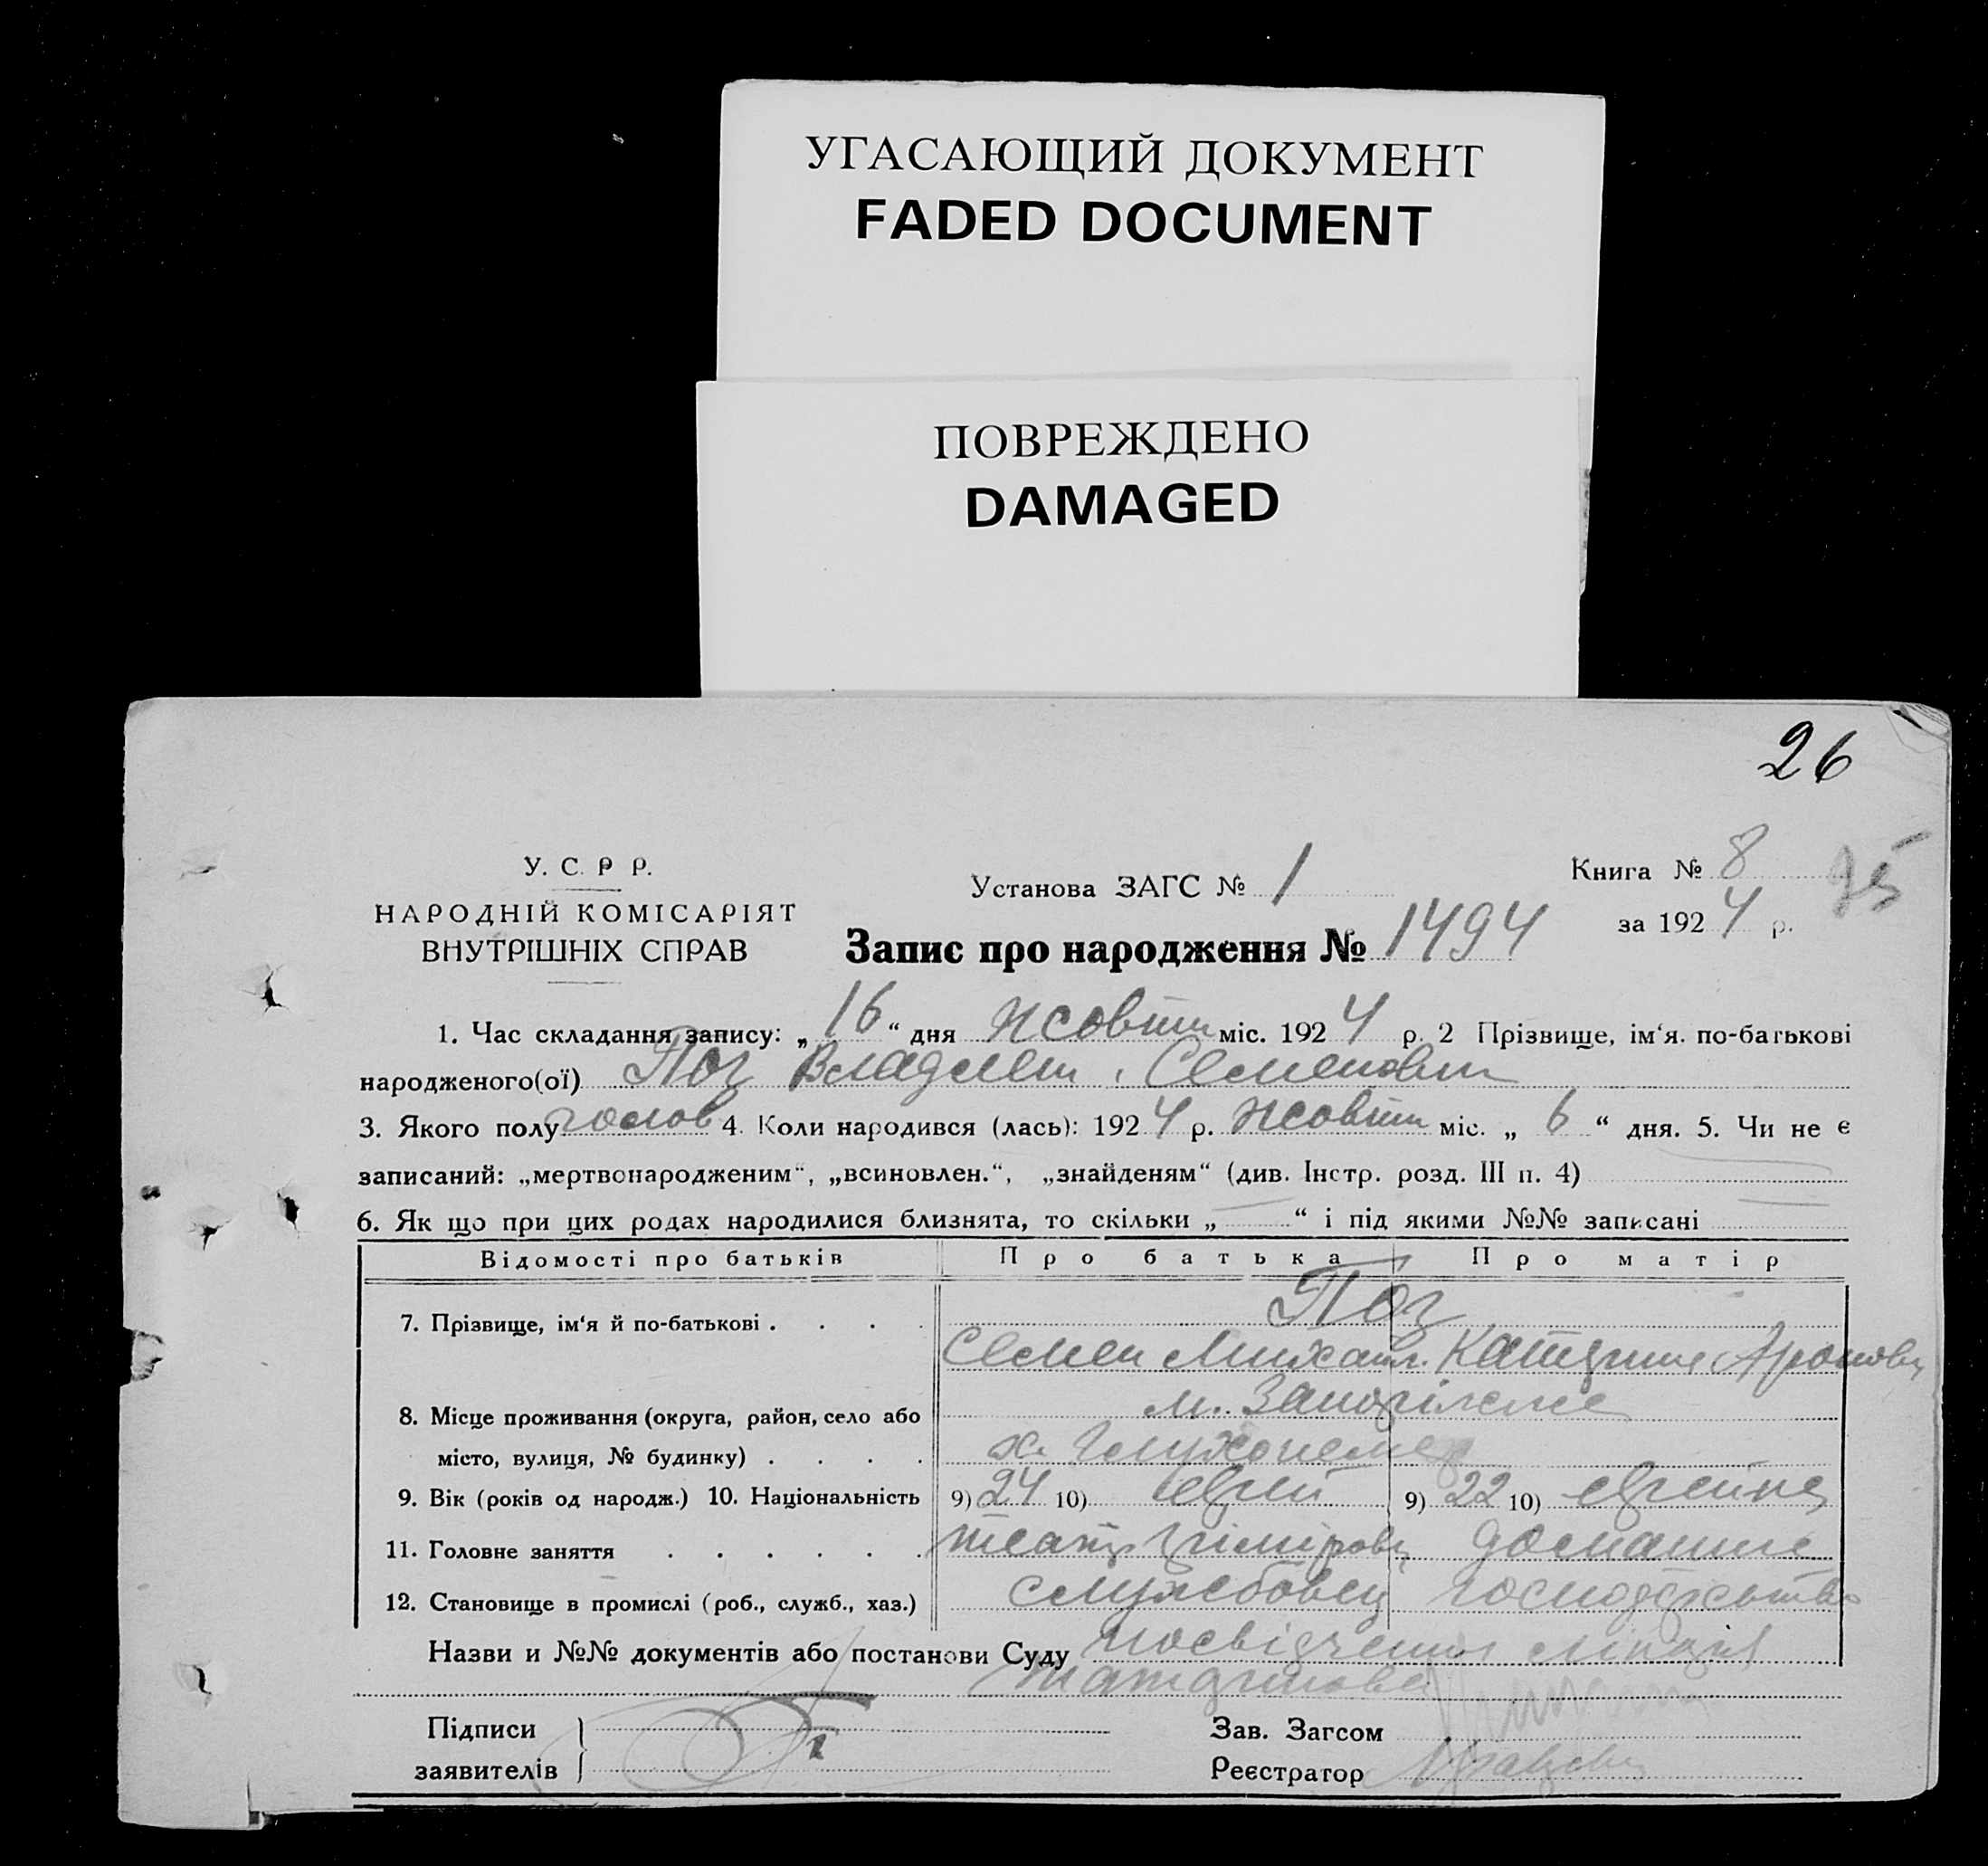 УГАСАЮЩИЙ ДОКУМЕНТ
FADED DOCUMENT
ПОВРЕЖДЕНО
DAMAGED
26
У. С. Р Р.
НАРОДНІЙ КОМІСАРІЯТ
ВНУТРІШНІХ СПРАВ
Установа ЗАГС № 1
Книга № 8
за 1924 р.
Запис про народження № 1494
1. Час складання запису: „16“ дня Жовтн міс. 1924 р. 2 Прізвище, ім‘я. по-батькові
народженого(ої) Пог Семенович
3. Якого полу чолов 4. Коли народився (лась): 1924 р. Жовтн міс. „6“ дня. 5. Чи не є
записаний: „мертвонародженим“, „всиновлен.“, „знайденям“ (див. Інстр. розд. III п. 4)
6. Як що при цих родах народилися близнята, то скільки „ “ і під якими №№ записані
Відомості про батьків Про батька Про матір
7. Прізвище, ім‘я й по-батькові . . . . Пог
Семен Михайл. Катерина Ароновна
8. Місце проживання (округа, район, село або м. Запоріжже
місто, вулиця, № будинку) . . . .
9. Вік (років од народж.) 10. Національність 9) 24 10) єврей 9) 22 10) єврейка
11. Головне заняття . . . . . . домашнє
12. Становище в промислі (роб., служб., хаз.) службовець господарство
Назви и №№ документів або постанови Суду посвідчення міліції
Підписи
заявителів
Зав. Загсом
Реєстратор